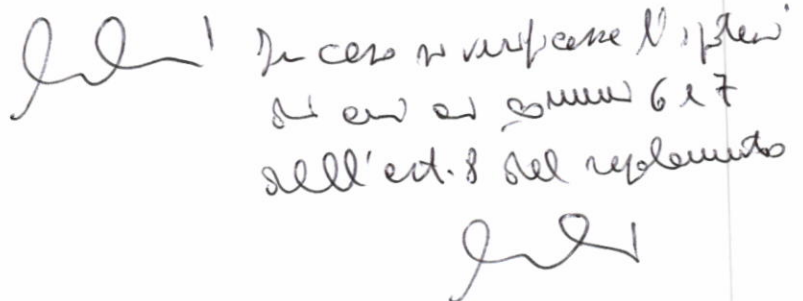 In caso si verificasse l'ipotesi
di cui ai commi 6 e 7
dell'art. 8 del regolamento